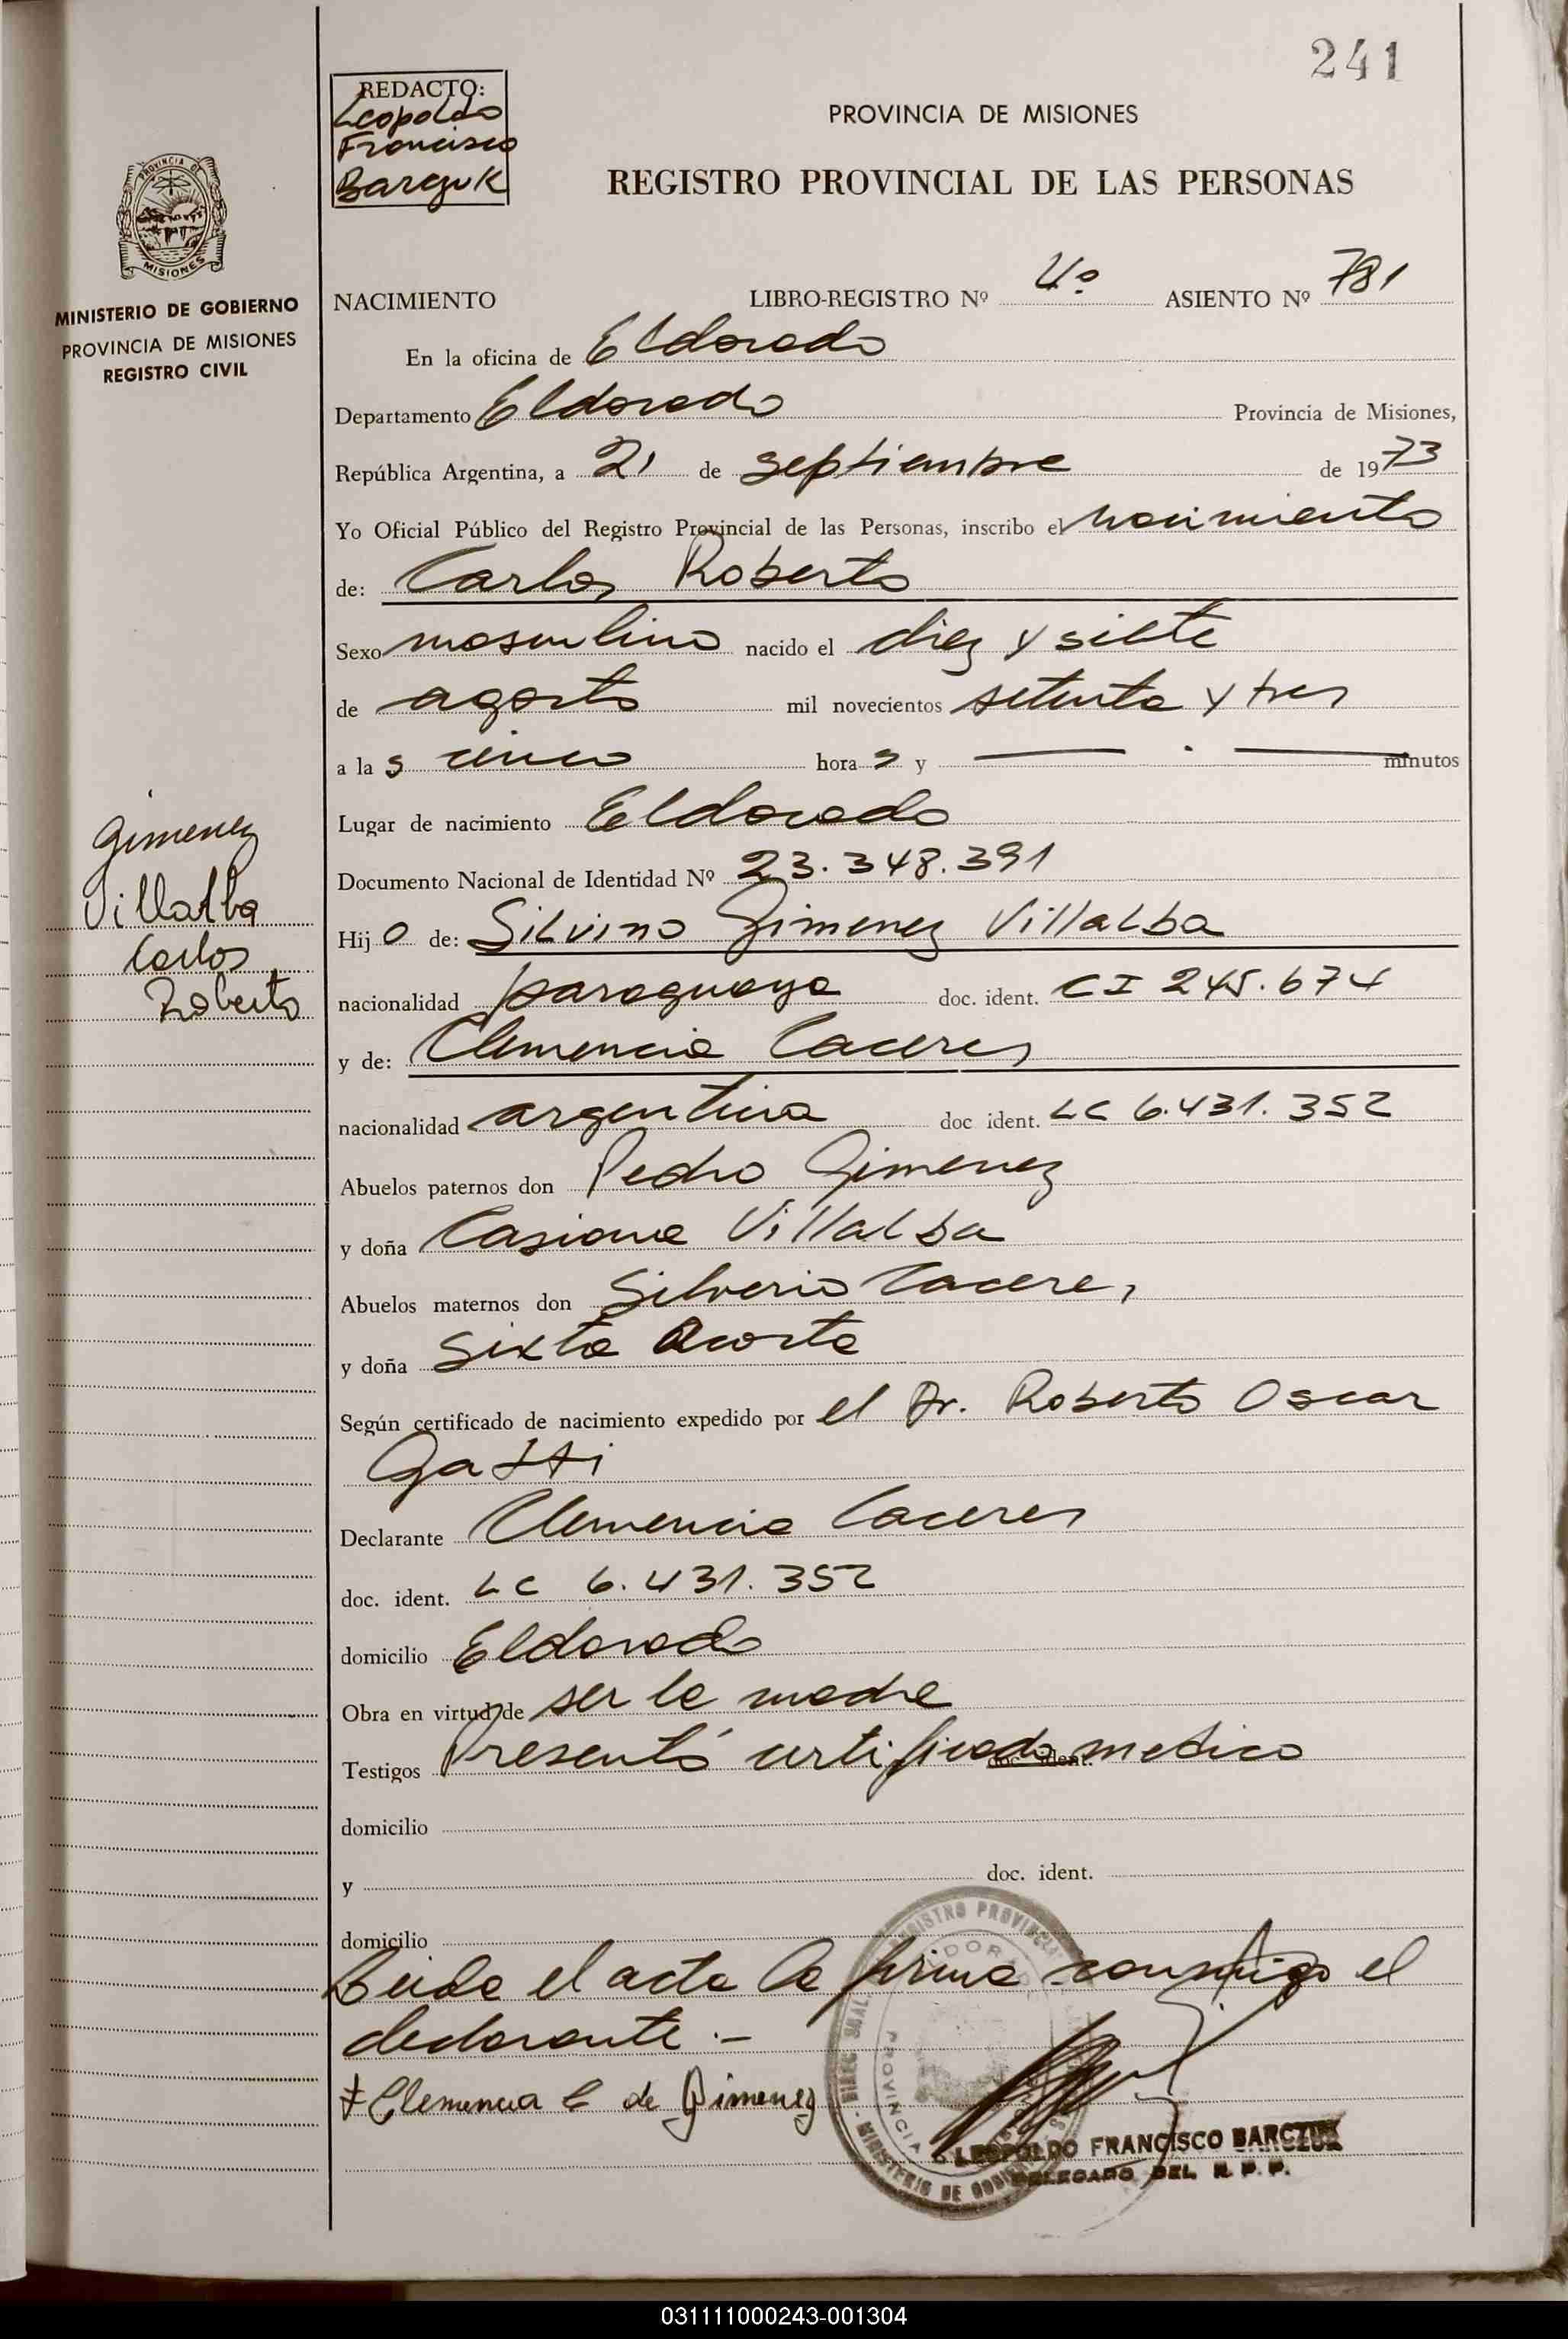 241
REDACTO:
Leopoldo
Francisco
Barczuk
PROVINCIA DE MISIONES
REGISTRO PROVINCIAL DE LAS PERSONAS
PROVINCIA DE
MISIONES
MINISTERIO DE GOBIERNO
PROVINCIA DE MISIONES
REGISTRO CIVIL
NACIMIENTO LIBRO-REGISTRO Nº 4º ASIENTO Nº 781
En la oficina de Eldorado
Departamento Eldorado Provincia de Misiones,
República Argentina, a 21 de septiembre de 1973
Yo Oficial Público del Registro Provincial de las Personas, inscribo el nacimiento
de: Carlos Roberto
Sexo masculino nacido el diez y siete
de agosto mil novecientos setenta y tres
a las cinco horas y — . — minutos
Lugar de nacimiento Eldorado
Documento Nacional de Identidad Nº 23.348.391
Gimenez
Villalba
Carlos
Roberto
Hijo de: Silvino Gimenez Villalba
nacionalidad paraguaya doc. ident. CI 245.674
y de: Clemencia Caceres
nacionalidad argentina doc ident. LC 6.431.352
Abuelos paternos don Pedro Gimenez
y doña Casiana Villalba
Abuelos maternos don Silverio Caceres
y doña Sixta Acosta
Según certificado de nacimiento expedido por el Dr. Roberto Oscar
Gatti
Declarante Clemencia Caceres
doc. ident. LC 6.431.352
domicilio Eldorado
Obra en virtud de ser la madre
Testigos Presentó certificado doc. ident. medico
domicilio
y doc. ident.
domicilio
Leida el acta la firma conmigo el
declarante.-
Clemencia C de Gimenez
LEOPOLDO FRANCISCO BARCZUK
DELEGADO DEL R. P. P.
031111000243-001304